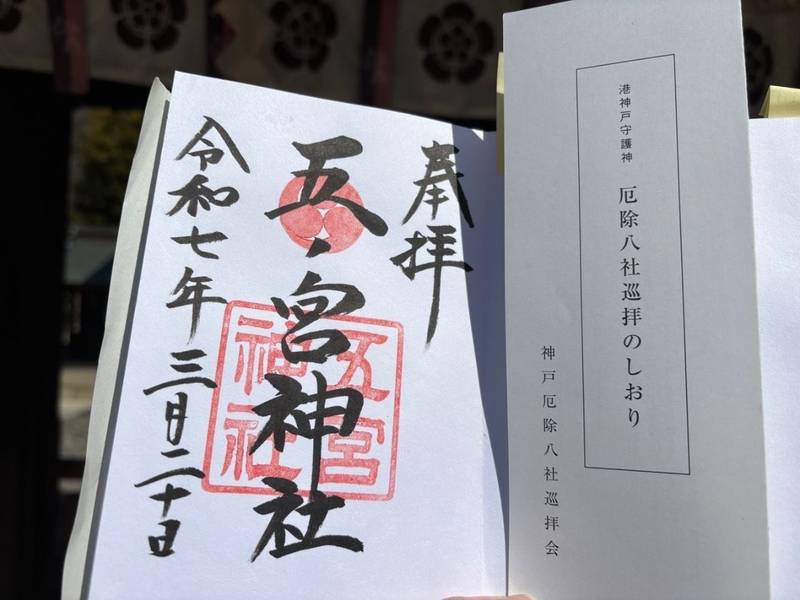 港神戸守護神 厄除八社巡拝のしおり
神戸厄除八社巡拝会
奉拝
五ノ宮神社
五宮
神社
令和七年 三月二十日